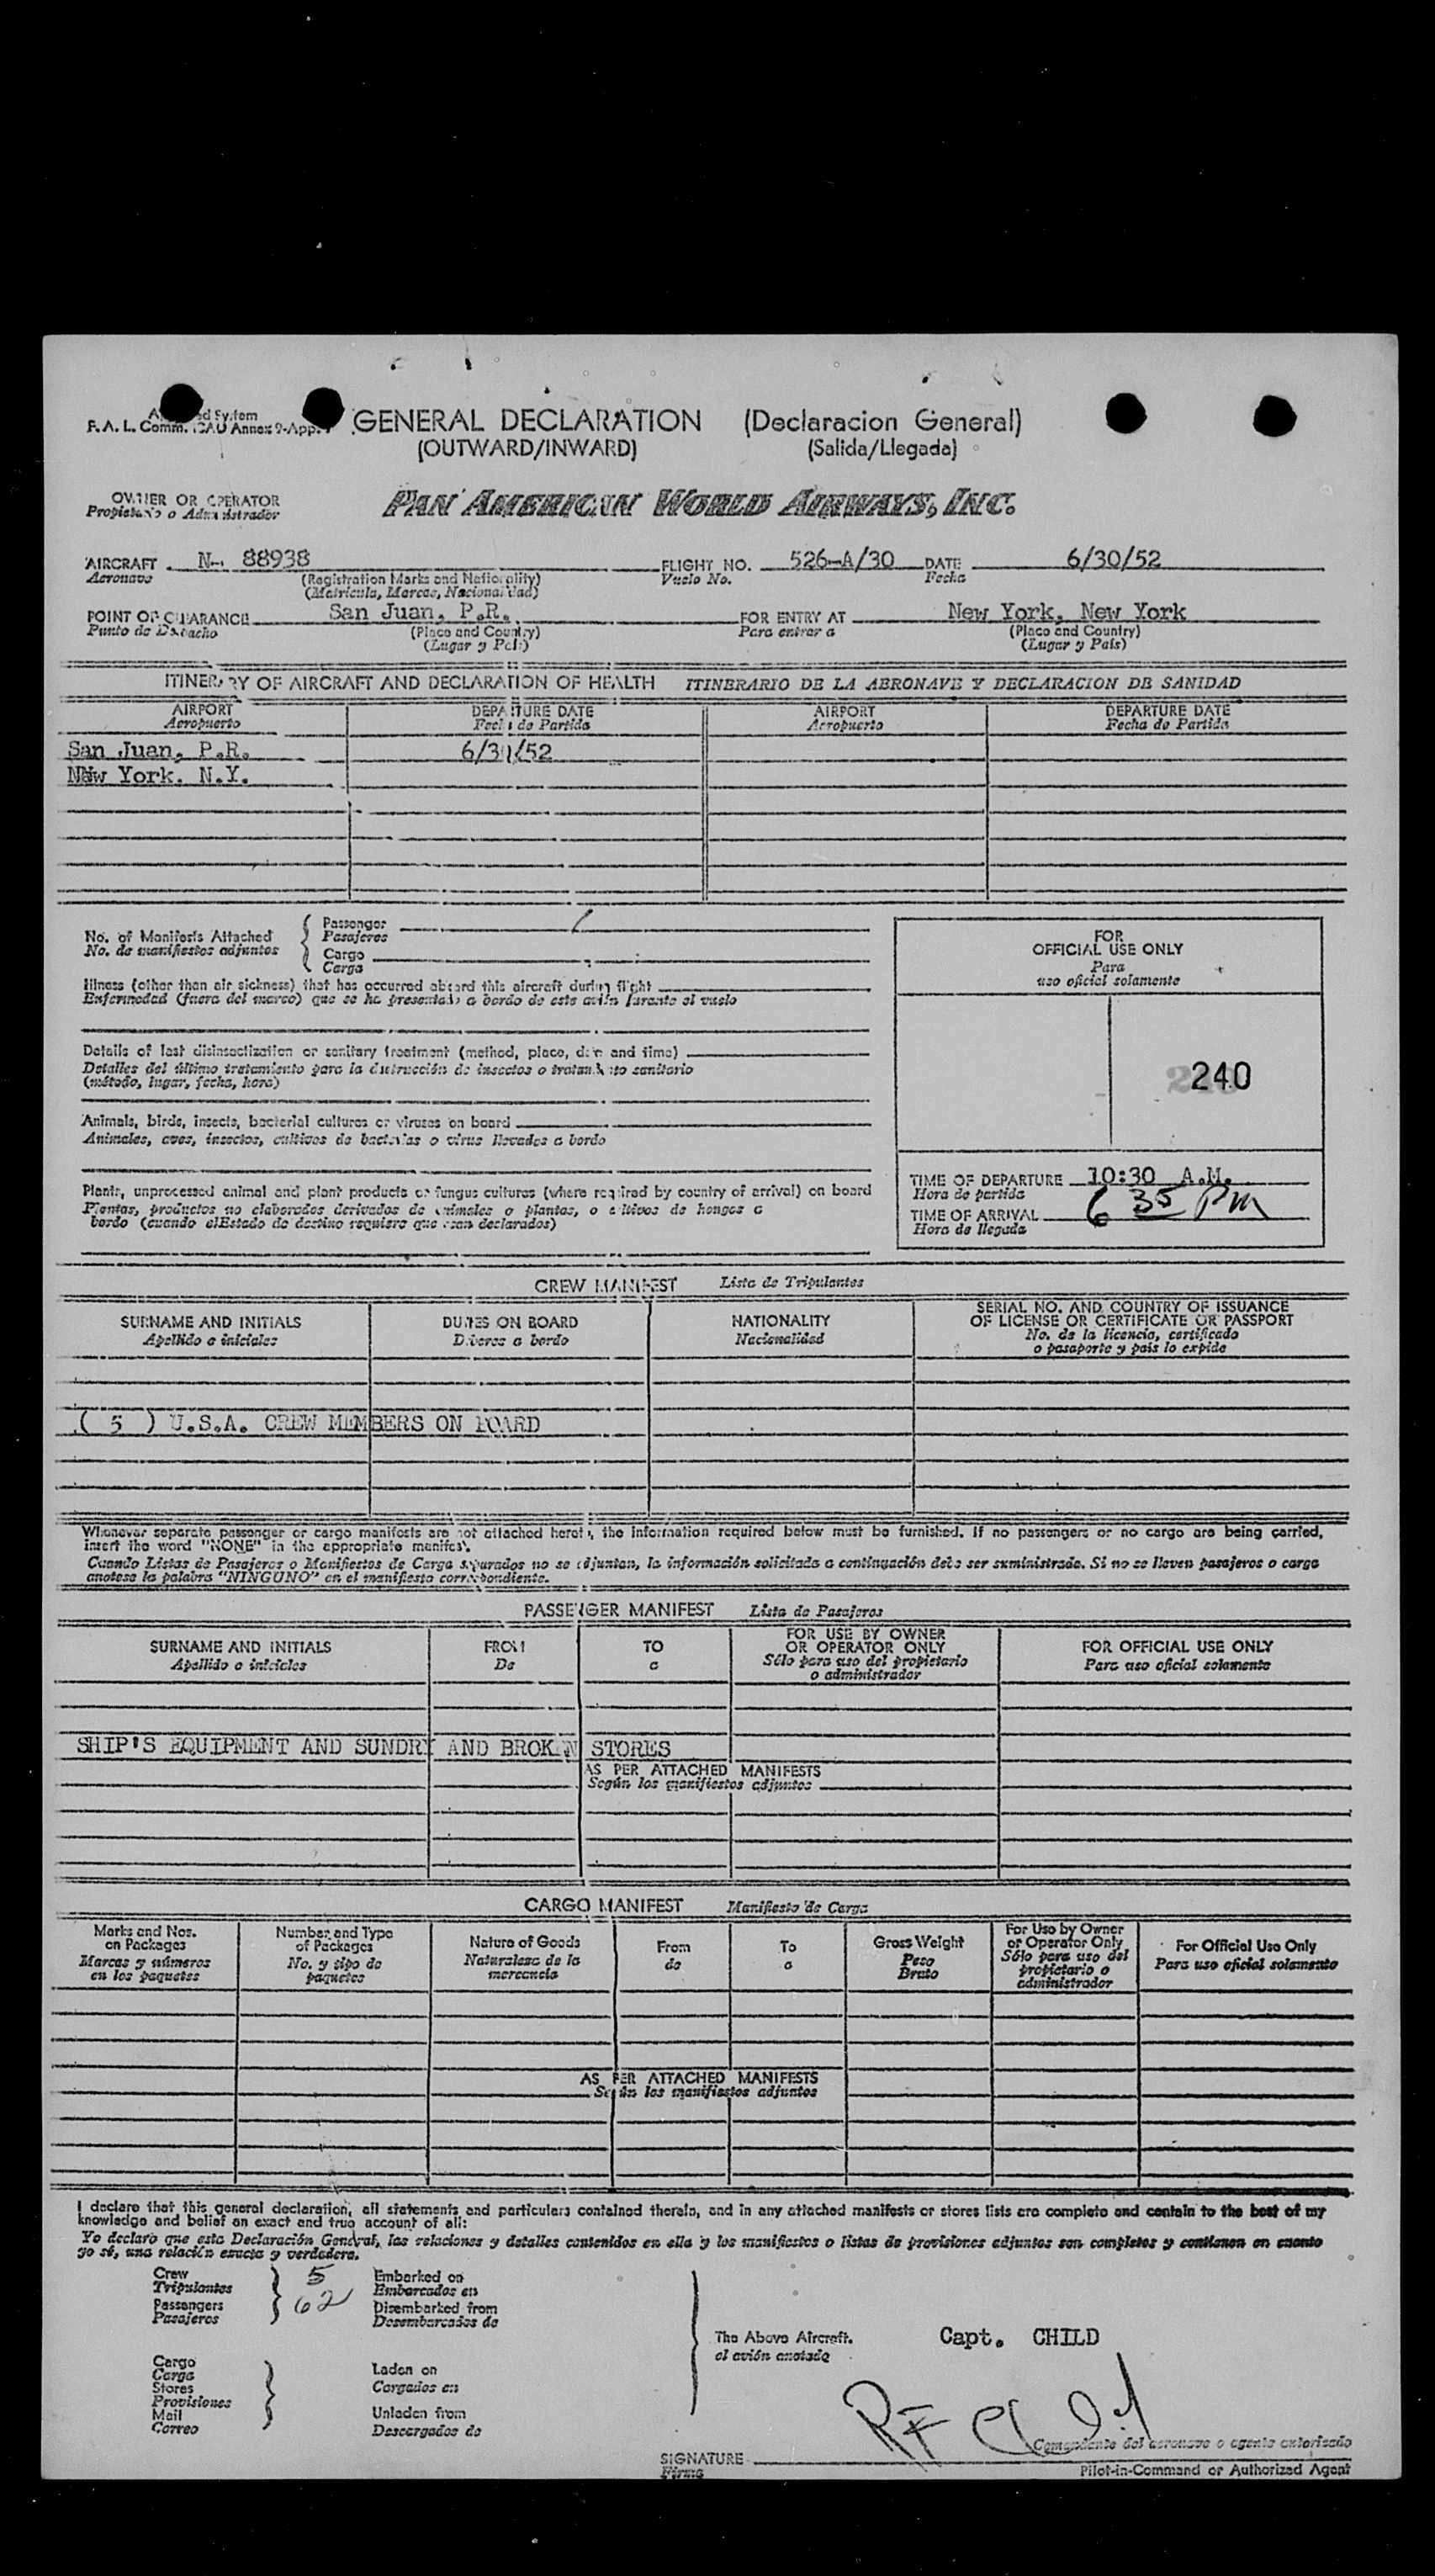 F. A. L. Comm. ICAO Annex 9-App.
GENERAL DECLARATION (Declaracion General)
(OUTWARD/INWARD) (Salida/Llegada)
OWNER OR OPERATOR
Propietario o Administrador
PAN AMERICAN WORLD AIRWAYS, INC.
AIRCRAFT N- 88938 FLIGHT NO. 526-A/30 DATE 6/30/52
Aeronave (Registration Marks and Nationality) Vuelo No. Fecha
(Matricula, Marcas, Nacionalidad)
POINT OF CLEARANCE San Juan, P.R. FOR ENTRY AT New York, New York
Punto de Despacho (Place and Country) Para entrar a (Place and Country)
(Lugar y País) (Lugar y País)
ITINERARY OF AIRCRAFT AND DECLARATION OF HEALTH ITINERARIO DE LA AERONAVE Y DECLARACION DE SANIDAD
AIRPORT DEPARTURE DATE AIRPORT DEPARTURE DATE
Aeropuerto Fecha de Partida Aeropuerto Fecha de Partida
San Juan, P.R. 6/30/52
New York. N.Y.
No. of Manifests Attached
No. de manifiestos adjuntos
Passenger
Pasajeros
Cargo
Carga
Illness (other than air sickness) that has occurred aboard this aircraft during flight
Enfermedad (fuera del mareo) que se ha presentado a bordo de este avión durante el vuelo
Details of last disinsectization or sanitary treatment (method, place, date and time)
Detalles del último tratamiento para la destrucción de insectos o tratamiento sanitario
(método, lugar, fecha, hora)
Animals, birds, insects, bacterial cultures or viruses on board
Animales, aves, insectos, cultivos de bacterias o virus llevados a bordo
Plants, unprocessed animal and plant products or fungus cultures (where required by country of arrival) on board
Plantas, productos no elaborados derivados de animales o plantas, o cultivos de hongos a
bordo (cuando elEstado de destino requiere que sean declarados)
FOR
OFFICIAL USE ONLY
Para
uso oficial solamente
240
TIME OF DEPARTURE 10:30 A.M.
Hora de partida
TIME OF ARRIVAL 6 35 PM
Hora de llegada
CREW MANIFEST Lista de Tripulantes
SURNAME AND INITIALS DUTIES ON BOARD NATIONALITY SERIAL NO. AND COUNTRY OF ISSUANCE
OF LICENSE OR CERTIFICATE OR PASSPORT
Apellido e iniciales Deberes a bordo Nacionalidad No. de la licencia, certificado
o pasaporte y país lo expide
( 5 ) U.S.A. CREW MEMBERS ON BOARD
Whenever separate passenger or cargo manifests are not attached hereto, the information required below must be furnished. If no passengers or no cargo are being carried,
insert the word "NONE" in the appropriate manifest.
Cuando Listas de Pasajeros o Manifiestos de Carga separados no se adjuntan, la información solicitada a continuación debe ser suministrada. Si no se llevan pasajeros o carga
anotese la palabra "NINGUNO" en el manifiesto correspondiente.
PASSENGER MANIFEST Lista de Pasajeros
SURNAME AND INITIALS FROM TO FOR USE BY OWNER
OR OPERATOR ONLY FOR OFFICIAL USE ONLY
Apellido e iniciales De a Sólo para uso del propietario
o administrador Para uso oficial solamente
SHIP'S EQUIPMENT AND SUNDRY AND BROKEN STORES
AS PER ATTACHED MANIFESTS
Según los manifiestos adjuntos
CARGO MANIFEST Manifiesto de Carga
Marks and Nos.
on Packages
Marcas y números
en los paquetes
Number and Type
of Packages
No. y tipo de
paquetes
Nature of Goods
Naturaleza de la
mercancia
From
de
To
a
Gross Weight
Peso
Bruto
For Use by Owner
or Operator Only
Sólo para uso del
propietario o
administrador
For Official Use Only
Para uso oficial solamente
AS PER ATTACHED MANIFESTS
Según los manifiestos adjuntos
I declare that this general declaration, all statements and particulars contained therein, and in any attached manifests or stores lists are complete and contain to the best of my
knowledge and belief an exact and true account of all:
Yo declaro que esta Declaración General, las relaciones y detalles contenidos en ella y los manifiestos o listas de provisiones adjuntos son completos y contienen en cuanto
yo sé, una relación exacta y verdadera.
Crew 5 Embarked on
Tripulantes Embarcados en
Passengers 62 Disembarked from
Pasajeros Desembarcados de
Cargo
Carga Laden on
Stores Cargados en
Provisiones
Mail Unladen from
Correo Descargados de
The Above Aircraft.
el avión anotado
Capt. CHILD
R F Child
Comandante del aeronave o agente autorizado
SIGNATURE
Firma
Pilot-in-Command or Authorized Agent